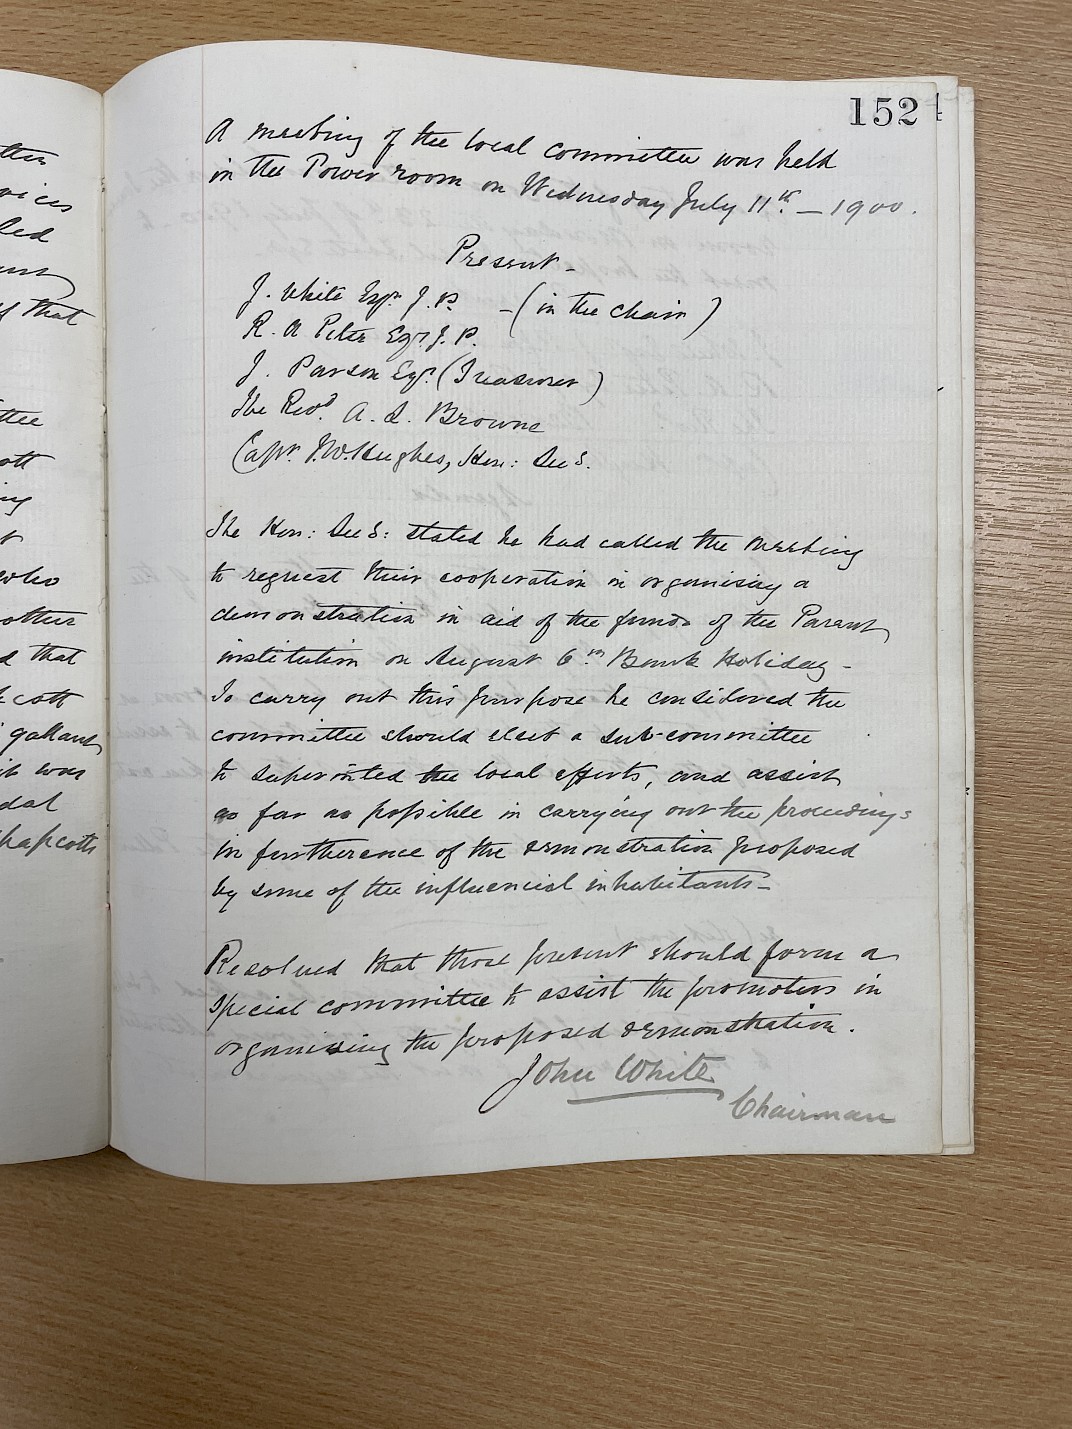 152
A meeting of the local committee was held
in the Power room on Wednesday July 11th. — 1900.
Present -
J. White Esqr. J. P. - (in the chair)
R. A Peter Esqr. J. P.
J. Parson Esqr. (Treasurer)
The Revd. A. L. Browne
Capt. Hughes, Hon: Sec.
The Hon: Sec: stated he had called the meeting
to request their cooperation in organising a
demonstration in aid of the funds of the Parent
institution on August 6th. Bank Holiday -
To carry out this purpose he considered the
committee should elect a sub-committee
to the local efforts, and assist
as far as possible in carrying out the proceedings
in furtherence of the demonstration proposed
by some of the influencial inhabitants -
Resolved that those present should form a
special committee to assist the promoters in
organising the proposed demonstration.
John White
Chairman
that
who
other
d that
gallant
it was